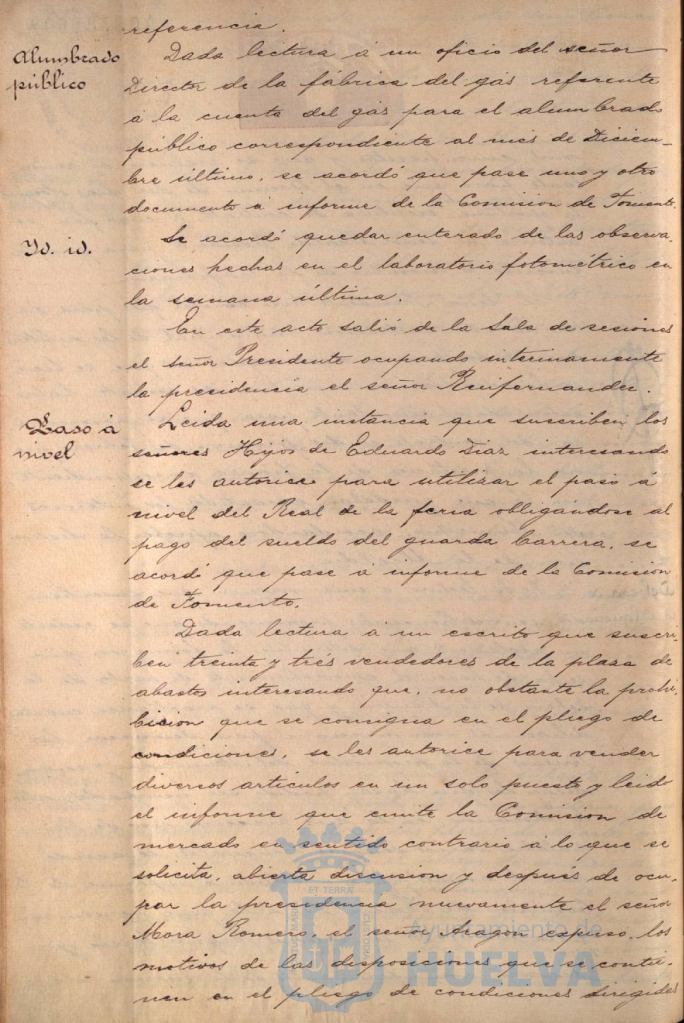 referencia.
Alumbrado
público
Dada lectura á un oficio del señor
Director de la fábrica del gás referente
á la cuenta del gás para el alumbrado
público correspondiente al més de Diciem-
bre último, se acordó que pase uno y otro
documento á informe de la Comision de Fomento.
Yd. id.
Se acordó quedar enterado de las observa-
ciones hechas en el laboratorio fotométrico en
la semana última.
En este acto salió de la Sala de sesiones
el señor Presidente ocupando interinamente
la presidencia el señor Ruifernandez.
Paso á
nivel
Leida una instancia que suscriben los
señores Hijos de Eduardo Diaz interesando
se les autorice para utilizar el paso á
nivel del Real de la feria obligándose al
pago del sueldo del guarda barrera, se
acordó que pase á informe de la Comision
de Fomento.
Dada lectura á un escrito que suscri-
ben treinta y trés vendedores de la plaza de
abastos interesando que, no obstante la prohi-
bicion que se consigna en el pliego de
condiciones, se les autorice para vender
diversos articulos en un solo puesto y leido
el informe que emite la Comision de
mercado en sentido contrario á lo que se
solicita, abierta discusion y después de ocu-
par la presidencia nuevamente el señor
Mora Romero, el señor Aragon expuso los
motivos de las disposiciones que se contie-
nen en el pliego de condiciones dirigidas
ET TERRA
Ayuntamiento de
HUELVA